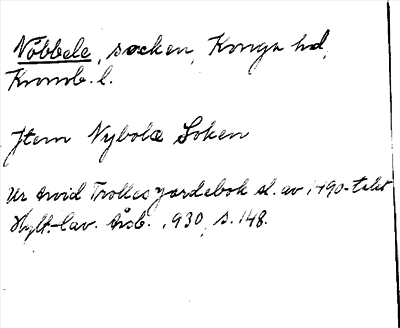 Nöbbele, socken, Konga hd,
Kronob. l.
Jtem Nybole Soken
Ur Arvid Trolles jordebok sl. av 1490-talet
Hylt.-Cav. Årsb. 1930, s. 148.